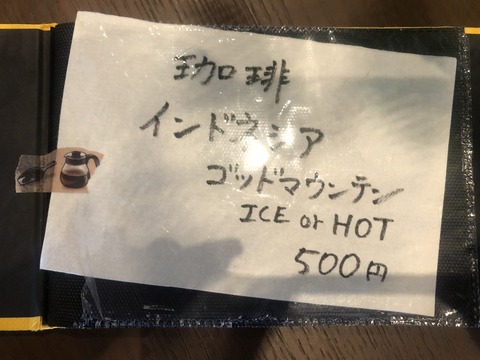 珈琲
インドネシア
ゴッドマウンテン
ICE or HOT
500円